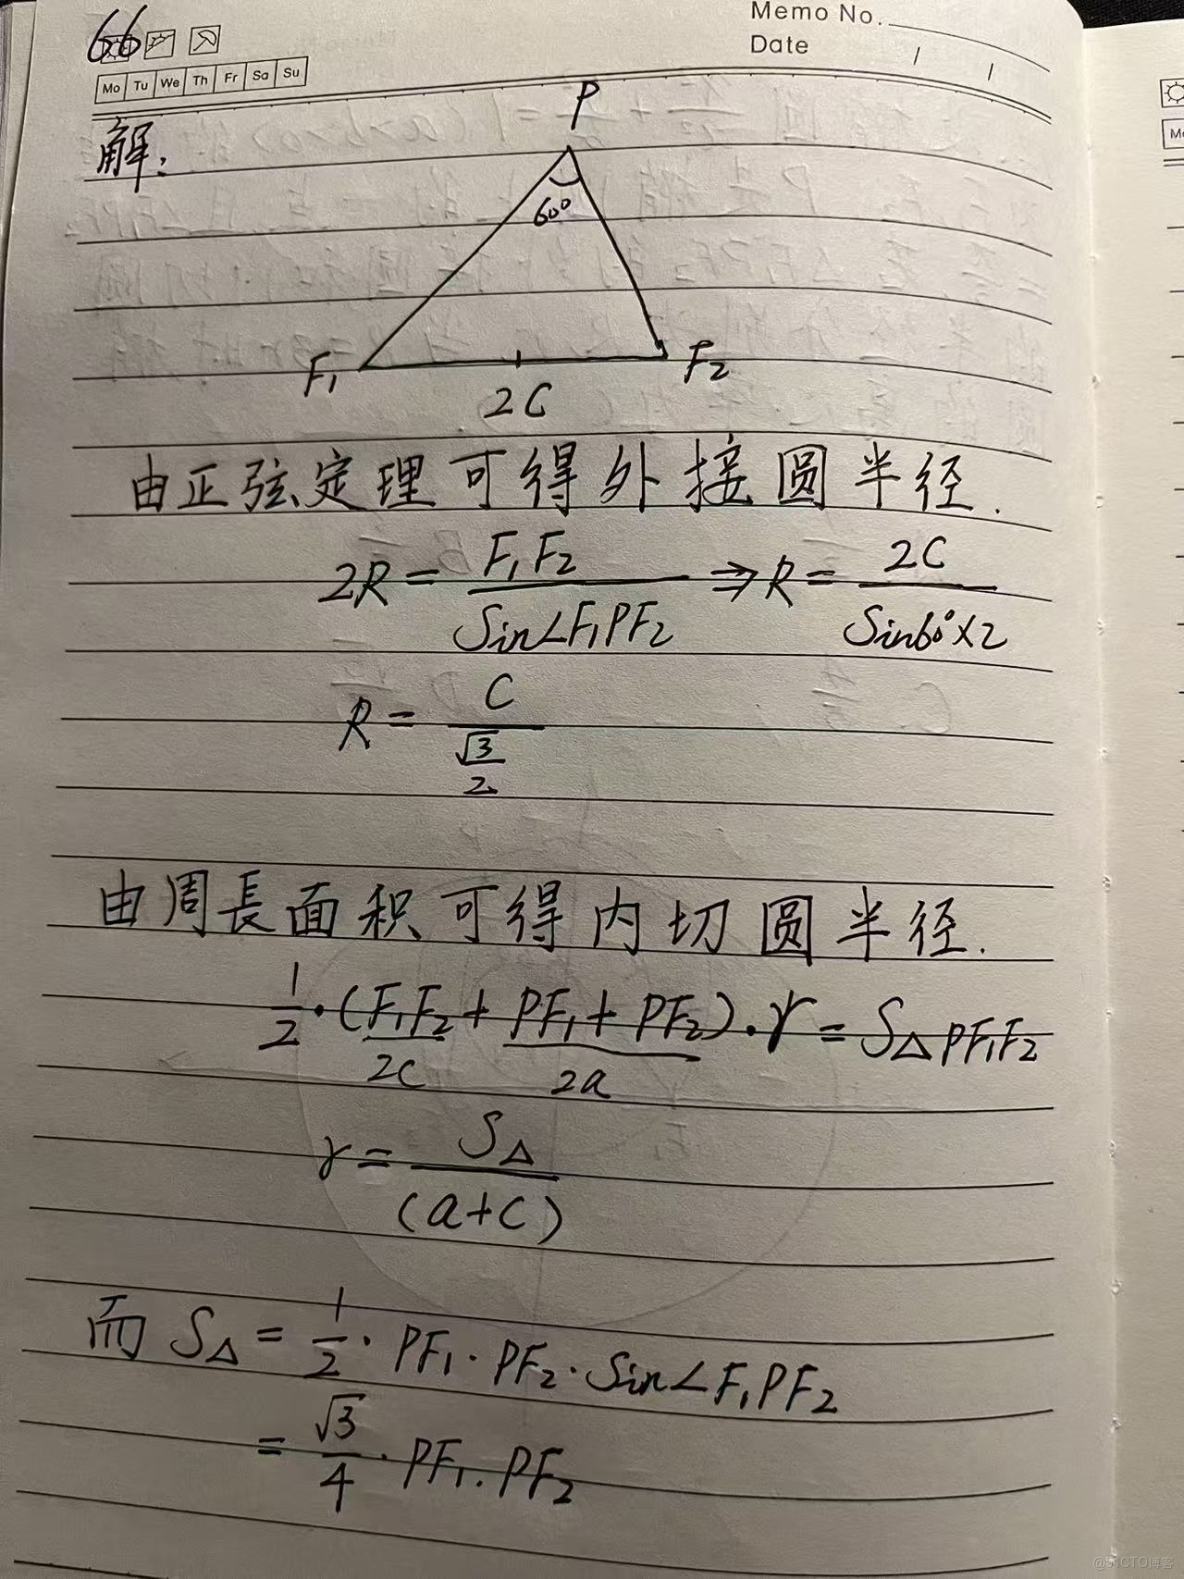 66
Memo No.
Date / /
Mo Tu We Th Fr Sa Su
解:
P
60°
F₁ F₂
2C
由正弦定理可得外接圆半径.
2R = F₁F₂ / Sin∠F₁PF₂ ⇒ R = 2C / Sin60°×2
R = C / (√3 / 2)
由周長面积可得内切圆半径.
1/2 · (F₁F₂ + PF₁ + PF₂) · r = S△PF₁F₂
2C 2a
r = S△ / (a+C)
而 S△ = 1/2 · PF₁ · PF₂ · Sin∠F₁PF₂
= √3/4 · PF₁ · PF₂
@51CTO博客